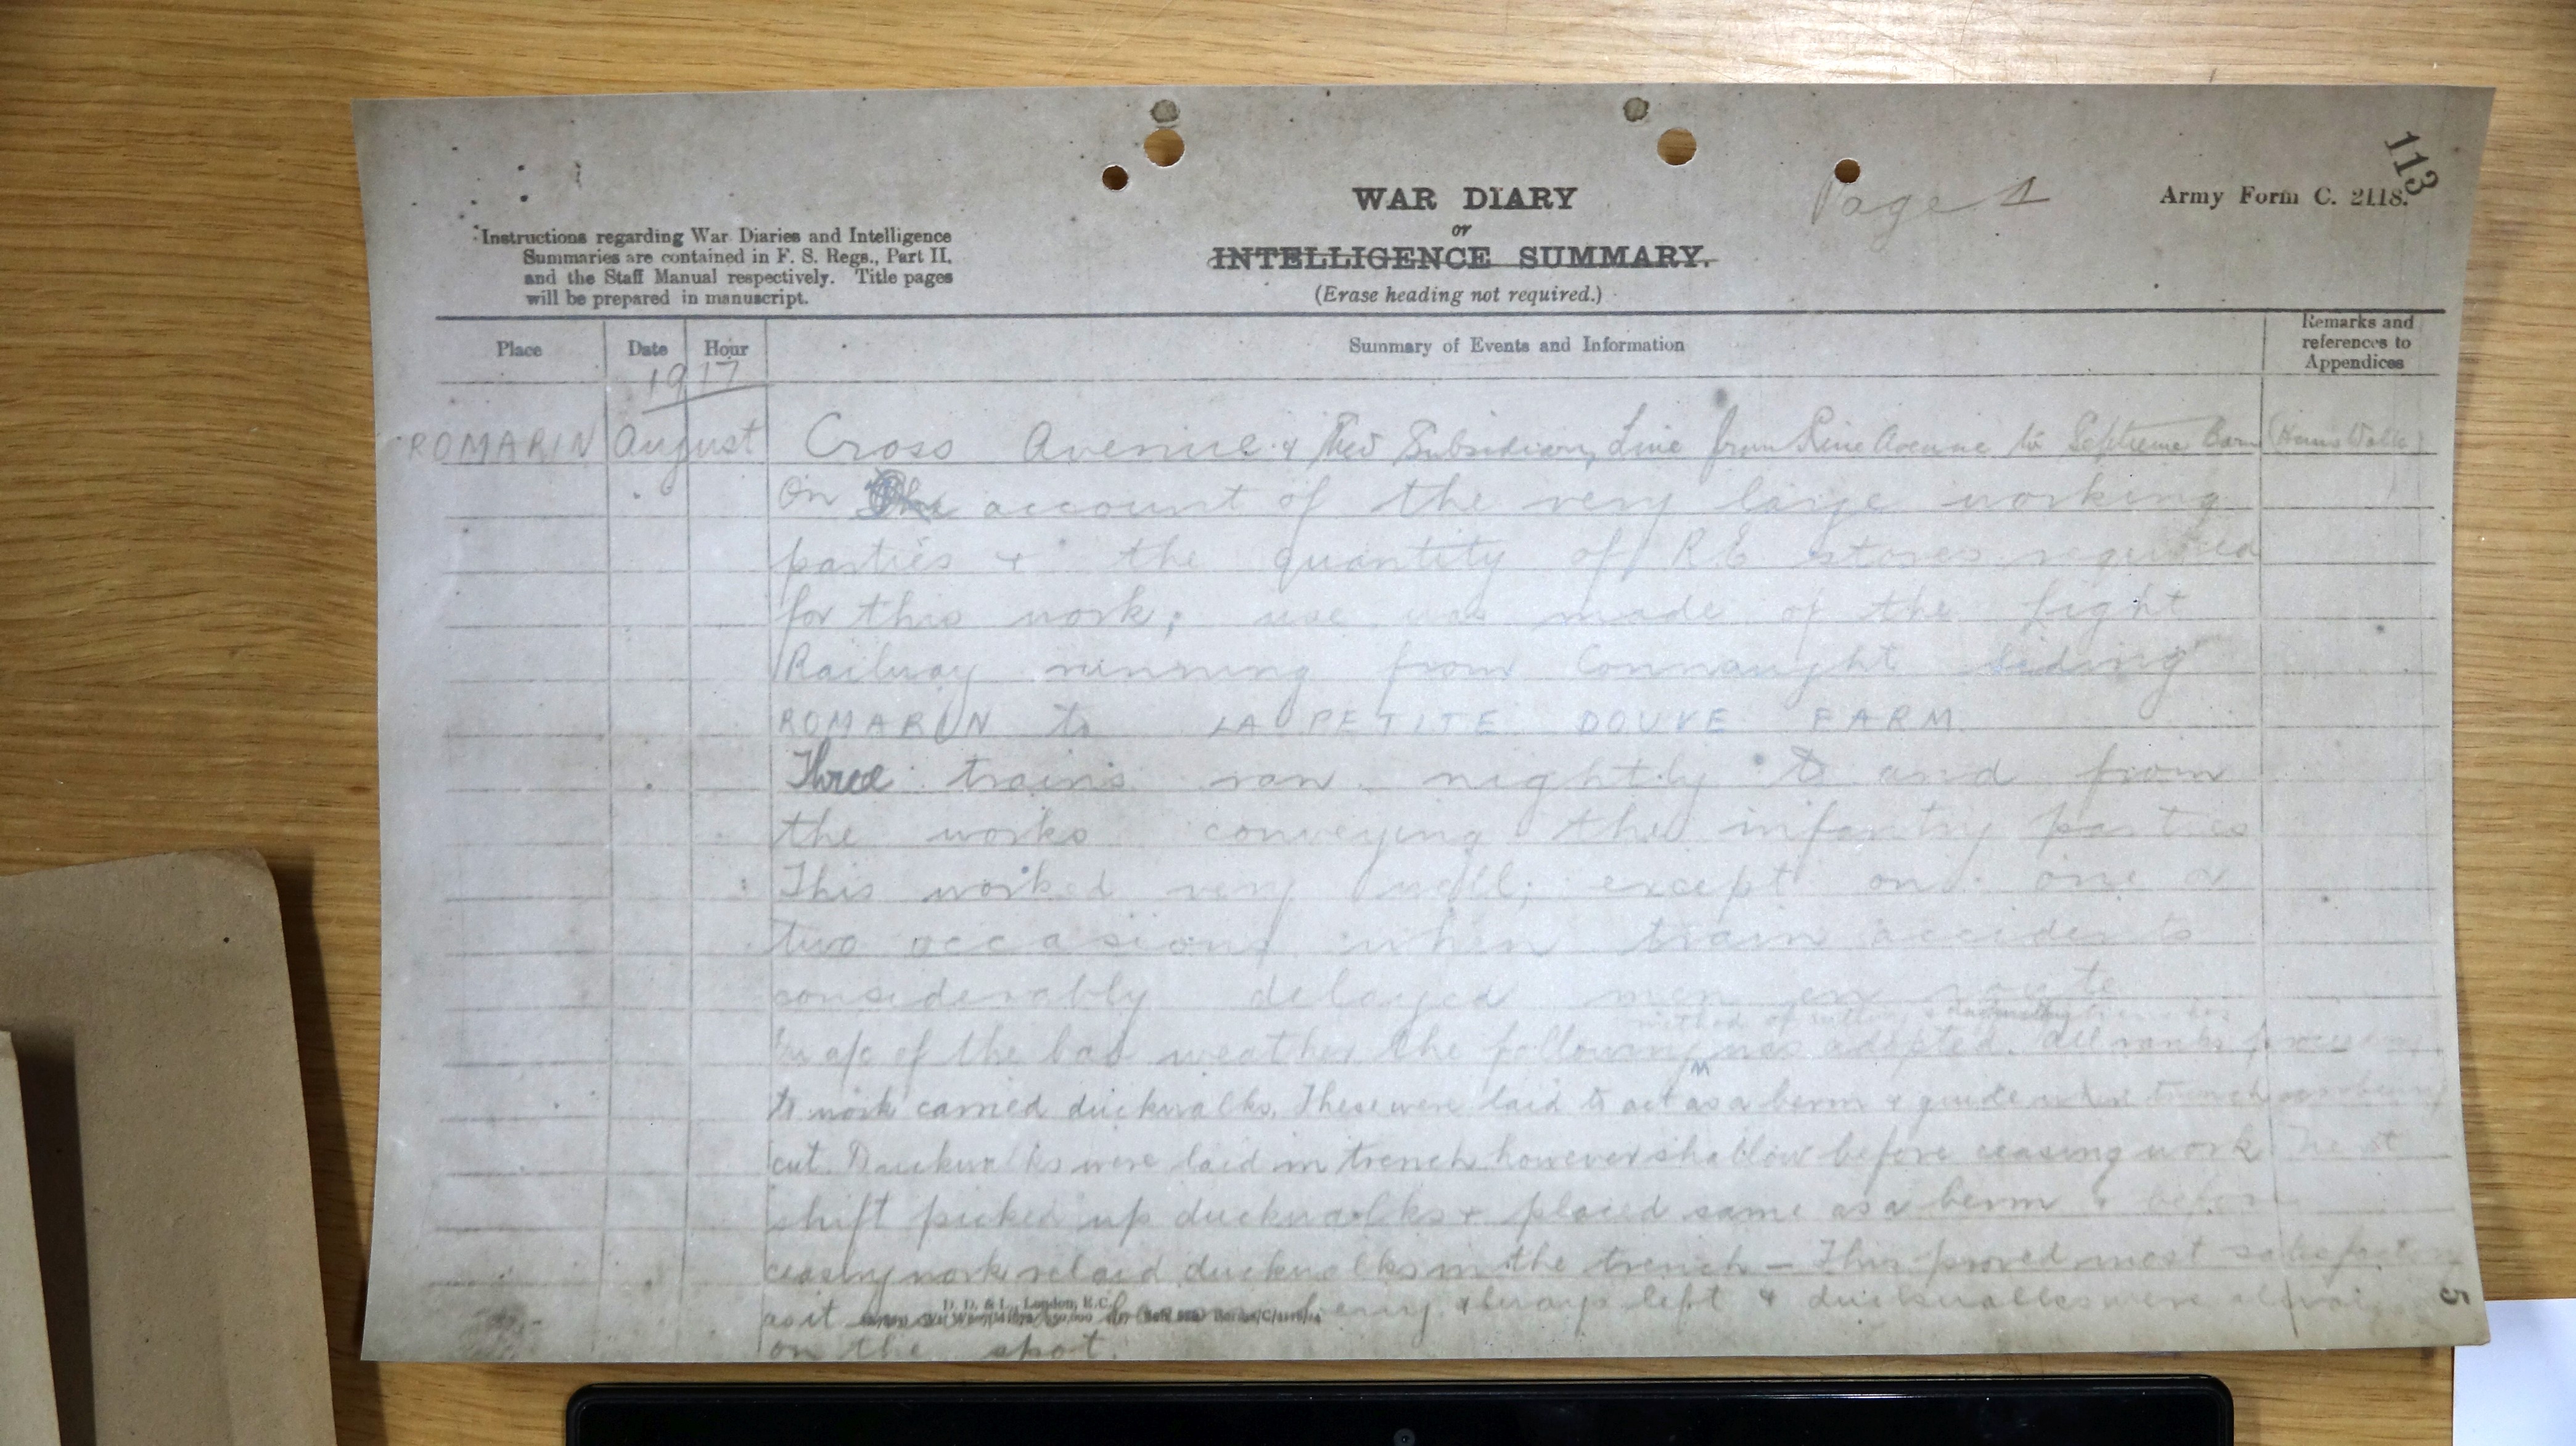 113
Page 1
Army Form C. 2118.
WAR DIARY
or
INTELLIGENCE SUMMARY.
(Erase heading not required.)
Instructions regarding War Diaries and Intelligence
Summaries are contained in F. S. Regs., Part II.
and the Staff Manual respectively. Title pages
will be prepared in manuscript.
Place Date Hour Summary of Events and Information Remarks and references to Appendices
1917
ROMARIN August Cross Avenue & The Subsidiary Line from Avenue to Septieme Barn
On account of the very large working
parties & the quantity of R.E stores required
for this work; use was made of the Light
Railway running from Connaught Siding
ROMARIN to LA PETITE DOUVE FARM
Three trains ran nightly to and from
the works conveying the infantry parties
This worked very well; except on one or
two occasions when train accidents
considerably delayed men en route
method of
On a/c of the bad weather the following was adopted. All ranks
to work carried duckwalks. These were laid to act as a berm & guide trench
cut. Duckwalks were laid in trench however shallow before ceasing work Next
shift picked up duckwalks & placed same as a berm & before
ceasing work relaid duckwalks in the trench – This proved most
as it always left & duckwalks were
D. D. & L., London, E.C.
on the spot.
5